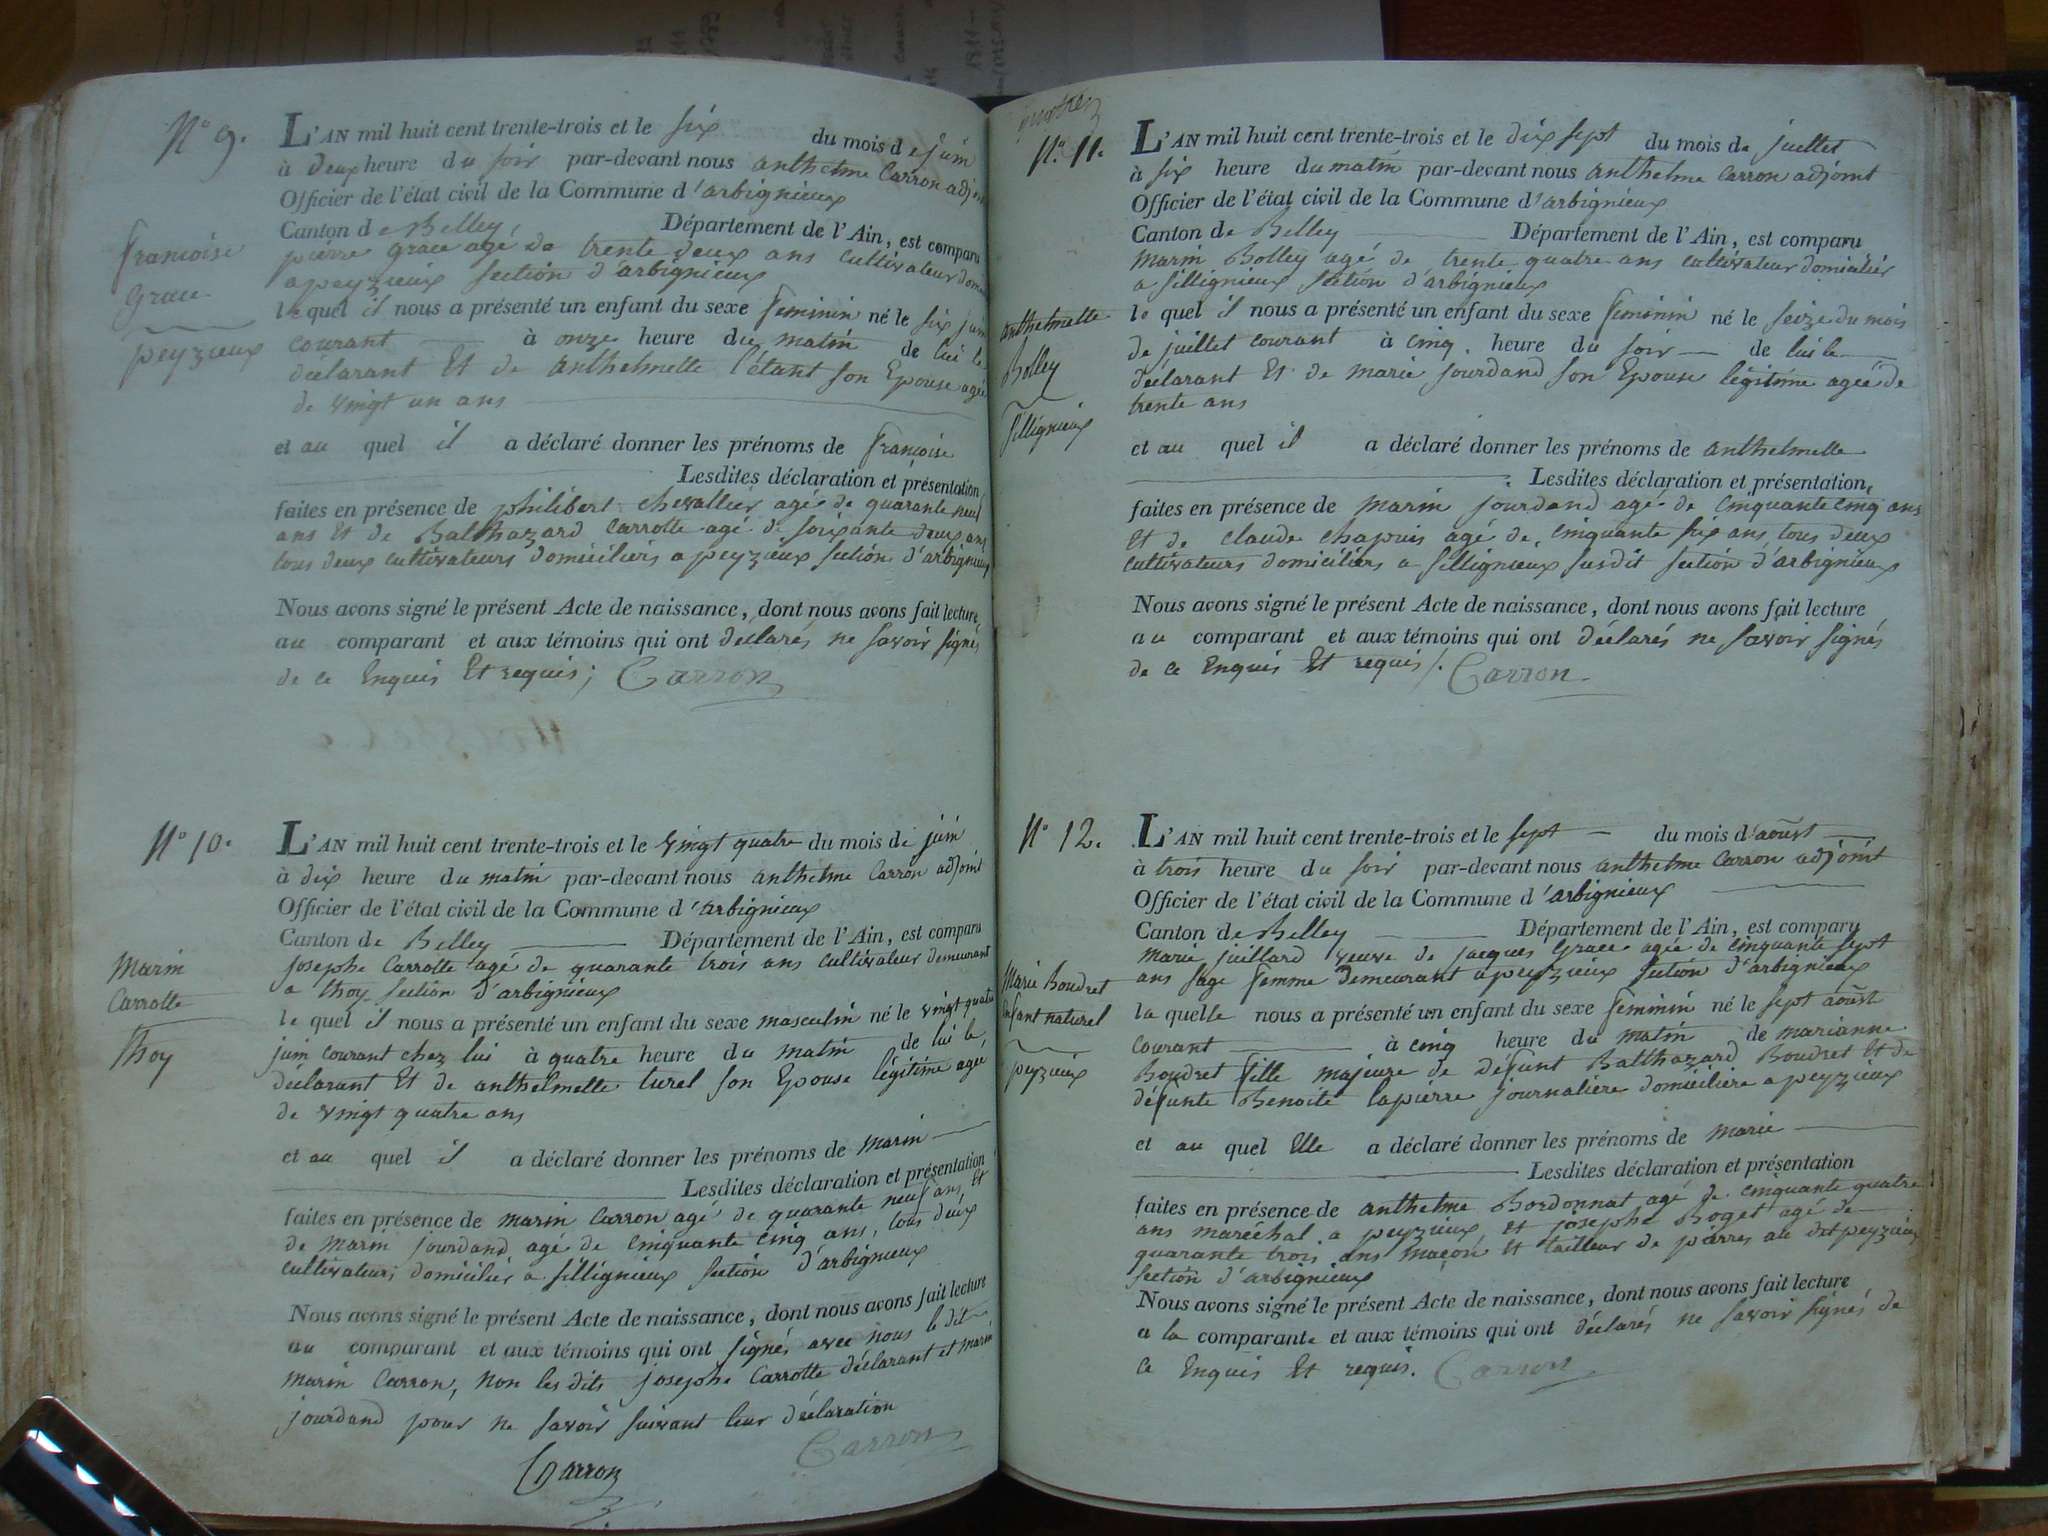 N° 9.
Francoise
Grace
peyzieux
L'AN mil huit cent trente-trois et le six du mois de juin
à deux heure du soir par-devant nous anthelme Carron adjoint
Officier de l'état civil de la Commune d'arbignieux
Canton de Belley Département de l'Ain, est comparu
pierre grace agé de trente deux ans cultivateur
a peyzieux section d'arbignieux
le quel il nous a présenté un enfant du sexe feminin né le six juin
courant à onze heure du matin de lui le
déclarant Et de anthelmette l'étant son Epouse agée
de vingt un ans
et au quel il a déclaré donner les prénoms de françoise
Lesdites déclaration et présentation
faites en présence de philibert chevallier agé de quarante neuf
ans Et de Balthazard Carrotte agé de soixante deux ans
tous deux cultivateurs domiciliers a peyzieux section d'arbignieux
Nous avons signé le présent Acte de naissance, dont nous avons fait lecture
au comparant et aux témoins qui ont déclarés ne savoir signés
de ce Enquis Et requis; Carron
N° 10.
Marin
Carrotte
thoy
L'AN mil huit cent trente-trois et le vingt quatre du mois de juin
à dix heure du matin par-devant nous anthelme Carron adjoint
Officier de l'état civil de la Commune d'arbignieux
Canton de Belley Département de l'Ain, est comparu
josephe Carrotte agé de quarante trois ans cultivateur demeurant
a thoy section d'arbignieux
le quel il nous a présenté un enfant du sexe masculin né le vingt quatre
juin courant chez lui à quatre heure du matin de lui le
déclarant Et de anthelmette turel son Epouse légitime agée
de vingt quatre ans
et au quel il a déclaré donner les prénoms de marin
Lesdites déclaration et présentation
faites en présence de marin Carron agé de quarante neuf ans, Et
de marin jourdand agé de cinquante cinq ans, tous deux
cultivateurs domicilié a sillignieux section d'arbignieux
Nous avons signé le présent Acte de naissance, dont nous avons fait lecture
au comparant et aux témoins qui ont signés avec nous le dit
marin Carron, non les dits josephe Carrotte déclarant et marin
jourdand pour ne savoir suivant leur déclaration
Carron
Carron
N° 11.
anthelmette
Bolley
sillignieux
L'AN mil huit cent trente-trois et le dix sept du mois de juillet
à six heure du matin par-devant nous anthelme Carron adjoint
Officier de l'état civil de la Commune d'arbignieux
Canton de Belley Département de l'Ain, est comparu
marin Bolley agé de trente quatre ans cultivateur domicilier
a sillignieux section d'arbignieux
le quel il nous a présenté un enfant du sexe feminin né le seize du mois
de juillet courant à cinq heure du soir de lui le
déclarant Et de marie jourdand son Epouse légitime ageé de
trente ans
et au quel il a déclaré donner les prénoms de anthelmette
Lesdites déclaration et présentation,
faites en présence de marin jourdand agé de cinquante cinq ans
Et de claude chapuis agé de cinquante six ans, tous deux
cultivateurs domiciliers a sillignieux susdit section d'arbignieux
Nous avons signé le présent Acte de naissance, dont nous avons fait lecture
au comparant et aux témoins qui ont déclarés ne savoir signés
de ce Enquis Et requis/. Carron
N° 12.
Marie Boudret
Enfant naturel
peyzieux
L'AN mil huit cent trente-trois et le sept du mois d'aoust
à trois heure du soir par-devant nous anthelme Carron adjoint
Officier de l'état civil de la Commune d'arbignieux
Canton de Belley Département de l'Ain, est compary
marie juillard veuve de jacques Grace agée de cinquante sept
ans sage femme demeurant a peyzieux section d'arbignieux
la quelle nous a présenté un enfant du sexe feminin né le sept aoust
courant à cinq heure du matin de marianne
Boudret fille majeure de défunt Balthazard Boudret Et de
défunte Benoite lapierre journalière domicilière a peyzieux
et au quel Elle a déclaré donner les prénoms de marie
Lesdites déclaration et présentation
faites en présence de anthelme Bordonnat agé de cinquante quatre
ans maréchal a peyzieux, et josephe Boget agé de
quarante trois ans maçon Et tailleur de pierres au dit peyzieux
section d'arbignieux
Nous avons signé le présent Acte de naissance, dont nous avons fait lecture
a la comparante et aux témoins qui ont déclarés ne savoir signés de
ce Enquis Et requis. Carron